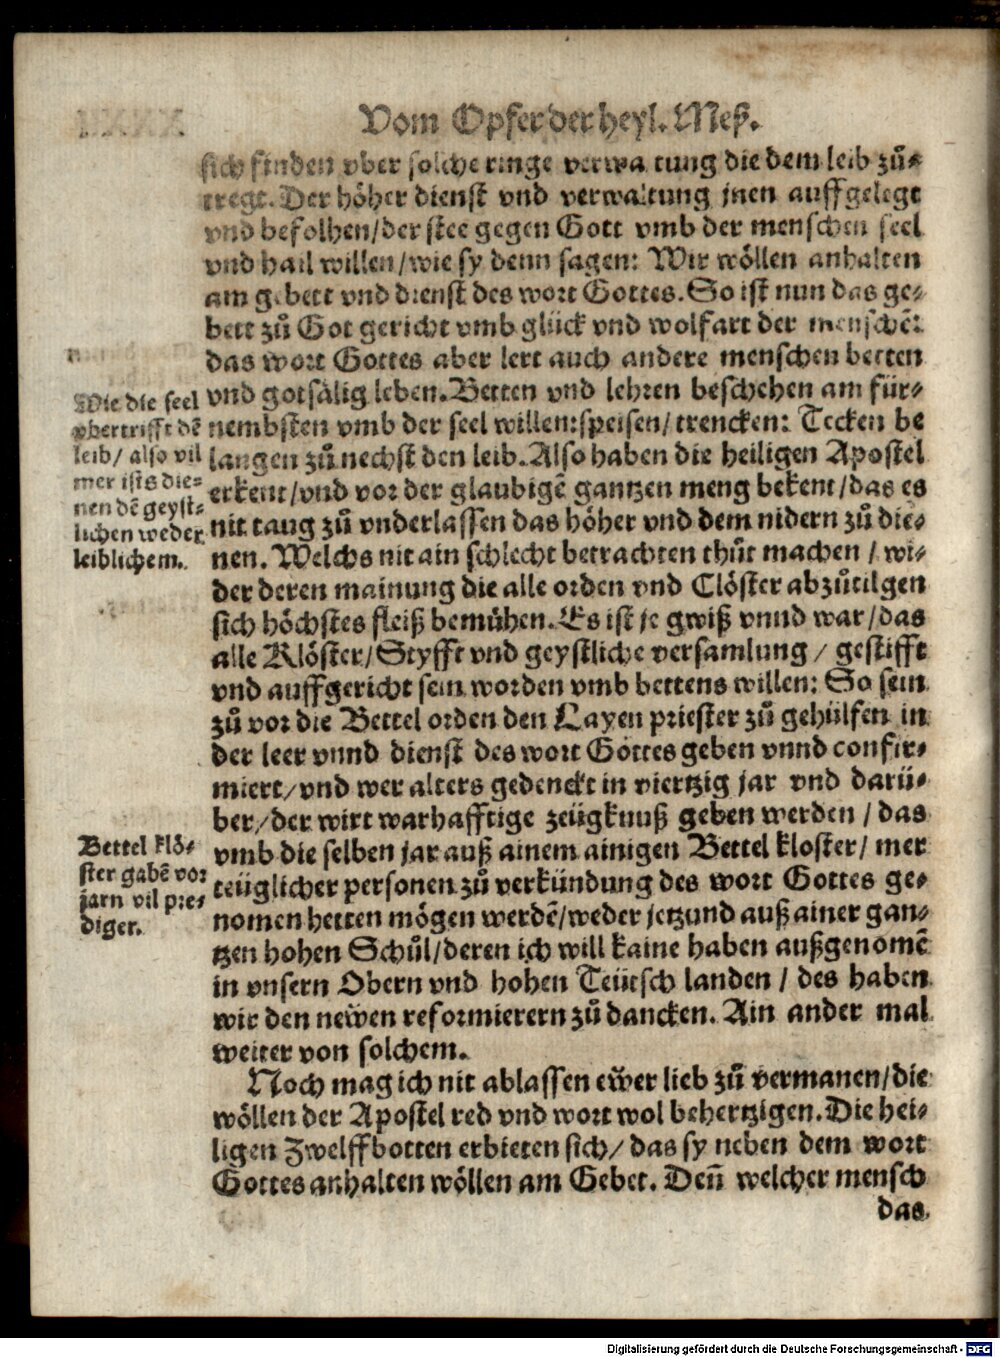 Vom Opfer der heyl. Meß.
sich finden vber solche ringe verwaltung die dem leib zů⸗
tregt. Der höher dienst vnd verwaltung jnen auffgelegt
vnd befolhen/der stee gegen Gott vmb der menschen seel
vnd hail willen/wie sy denn sagen: Wir wöllen anhalten
am gebett vnd dienst des wort Gottes. So ist nun das ge⸗
bett zů Got gericht vmb glück vnd wolfart der menschē:
das wort Gottes aber lert auch andere menschen betten
vnd gotsälig leben. Betten vnd lehren beschehen am für⸗
nembsten vmb der seel willen: speisen/ trencken: Tecken be
langen zů nechst den leib. Also haben die heiligen Apostel
erkent/vnd vor der glaubigē gantzen meng bekent/das es
nit taug zů vnderlassen das höher vnd dem nidern zů die⸗
nen. Welchs nit ain schlecht betrachten thůt machen / wi⸗
der deren mainung die alle orden vnd Clöster abzůtilgen
sich höchstes fleiß bemühen. Es ist je gwiß vnnd war/das
alle Klöster/Styfft vnd geystliche versamlung / gestifft
vnd auffgericht sein worden vmb bettens willen: So sein
zů vor die Bettel orden den Layen priester zů gehülfen in
der leer vnnd dienst des wort Gottes geben vnnd confir⸗
miert/vnd wer alters gedenckt in viertzig jar vnd darü⸗
ber/der wirt warhafftige zeügknuß geben werden / das
vmb die selben jar auß ainem ainigen Bettel kloster/ mer
teüglicher personen zů verkündung des wort Gottes ge⸗
nomen hetten mögen werdē/weder jetzund auß ainer gan⸗
tzen hohen Schůl/deren ich will kaine haben außgenomē
in vnsern Obern vnd hohen Teütsch landen / des haben
wir den newen reformierern zů dancken. Ain ander mal
weiter von solchem.
Noch mag ich nit ablassen ewer lieb zů vermanen/die
wöllen der Apostel red vnd wort wol behertzigen. Die hei⸗
ligen Zwelffbotten erbieten sich/ das sy neben dem wort
Gottes anhalten wöllen am Gebet. Deñ welcher mensch
das
Wie die seel
vbertrifft dē
leib/ also vil
mer ists die⸗
nen dē geyst⸗
lichen weder
leiblichem.
Bettel klö⸗
ster gabē vor
jarn vil pre⸗
diger.
Digitalisierung gefördert durch die Deutsche Forschungsgemeinschaft - DFG